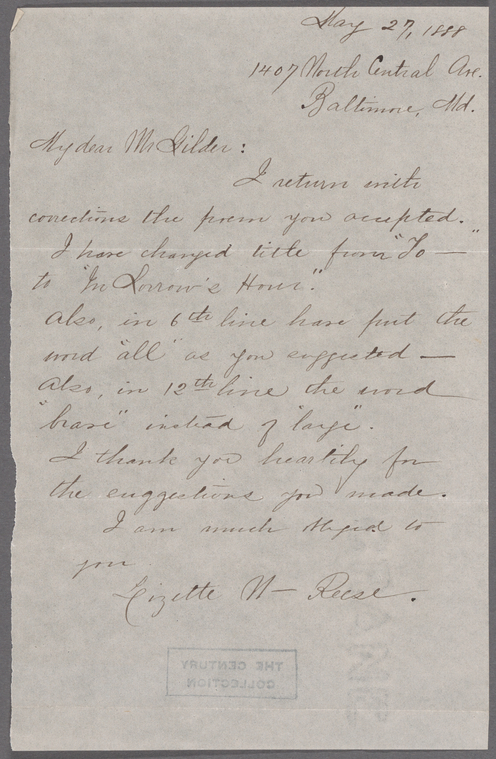 May 27, 1888
1407 North Central Ave.
Baltimore, Md.
My dear Mr Gilder:
I return with
corrections the poem you accepted.
I have changed title from "To —"
to "In Sorrow's Hour."
Also, in 6th line have put the
word "all" as you suggested —
Also, in 12th line the word
"brave" instead of "large".
I thank you heartily for
the suggestions you made.
I am much obliged to
you
Lizette W— Reese.
THE CENTURY
COLLECTION